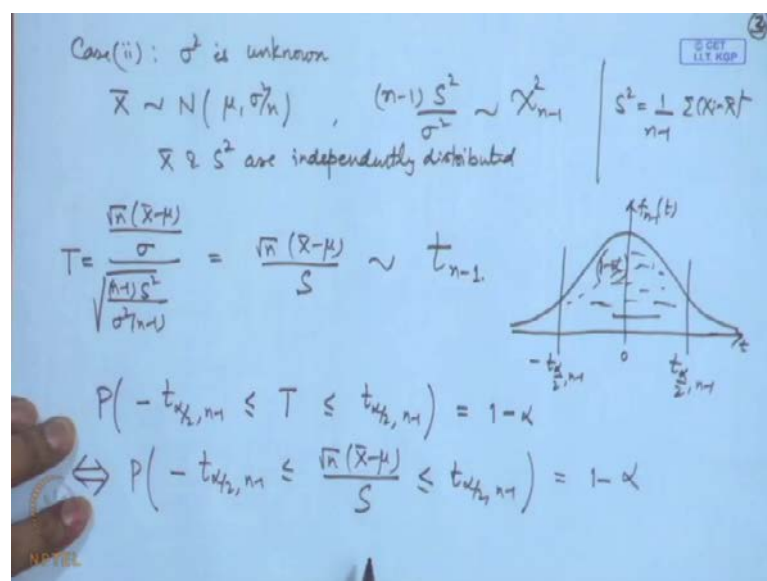 ③
© CET
I.I.T. KGP
Case(ii): σ² is unknown
X̄ ~ N(μ, σ²/n), (n-1)S²/σ² ~ χ²ₙ₋₁ | S² = 1/(n-1) Σ(Xi-X̄)²
X̄ & S² are independently distributed
T = (√n(X̄-μ)/σ) / √((n-1)S²/(σ²(n-1))) = √n(X̄-μ)/S ~ tₙ₋₁.
fₙ₋₁(t)
1-α
-t_{α/2, n-1} 0 t_{α/2, n-1} t
P(-t_{α/2, n-1} ≤ T ≤ t_{α/2, n-1}) = 1-α
⇔ P(-t_{α/2, n-1} ≤ √n(X̄-μ)/S ≤ t_{α/2, n-1}) = 1-α
NPTEL